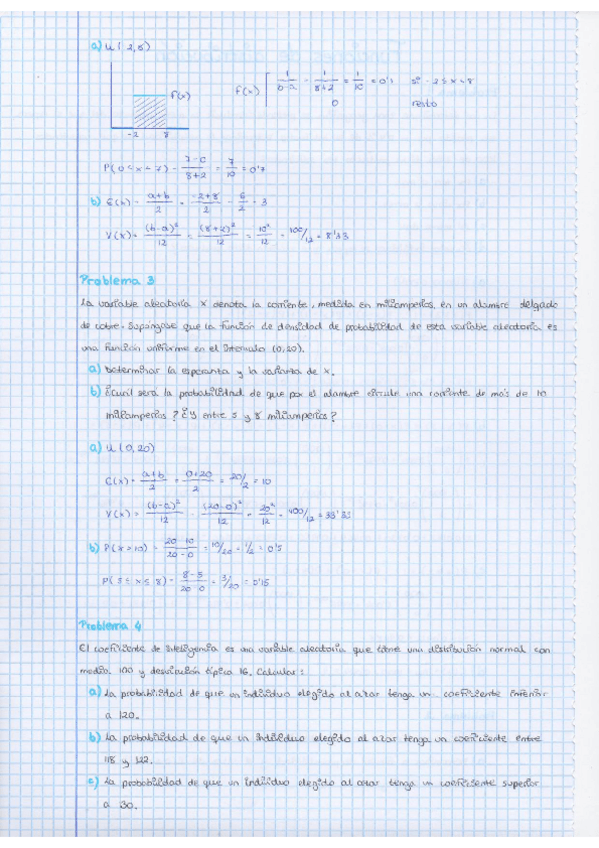 a) U(-2,8)
f(x)
-2 8
f(x) 1/(b-a) = 1/(8+2) = 1/10 = 0'1 si -2≤x<8
0 resto
P(0<x<7) = (7-0)/(8+2) = 7/10 = 0'7
b) E(b) = (a+b)/2 = (-2+8)/2 = 6/2 = 3
V(x) = (b-a)²/12 = (8+2)²/12 = 10²/12 = 100/12 = 8'33
Problema 3
La variable aleatoria X denota la corriente, medida en miliamperios, en un alambre delgado
de cobre. Supóngase que la función de densidad de probabilidad de esta variable aleatoria es
una función uniforme en el intervalo (0,20).
a) Determinar la esperanza y la varianza de x.
b) ¿Cuál será la probabilidad de que por el alambre circule una corriente de más de 10
miliamperios? ¿Y entre 5 y 8 miliamperios?
a) U(0,20)
E(x) = (a+b)/2 = (0+20)/2 = 20/2 = 10
V(x) = (b-a)²/12 = (20-0)²/12 = 20²/12 = 400/12 = 33'33
b) P(x>10) = (20-10)/(20-0) = 10/20 = 1/2 = 0'5
P(5≤x≤8) = (8-5)/(20-0) = 3/20 = 0'15
Problema 4
El coeficiente de inteligencia es una variable aleatoria que tiene una distribución normal con
media 100 y desviación típica 16. Calcular:
a) La probabilidad de que un individuo elegido al azar tenga un coeficiente inferior
a 120.
b) La probabilidad de que un individuo elegido al azar tenga un coeficiente entre
118 y 122.
c) La probabilidad de que un individuo elegido al azar tenga un coeficiente superior
a 30.